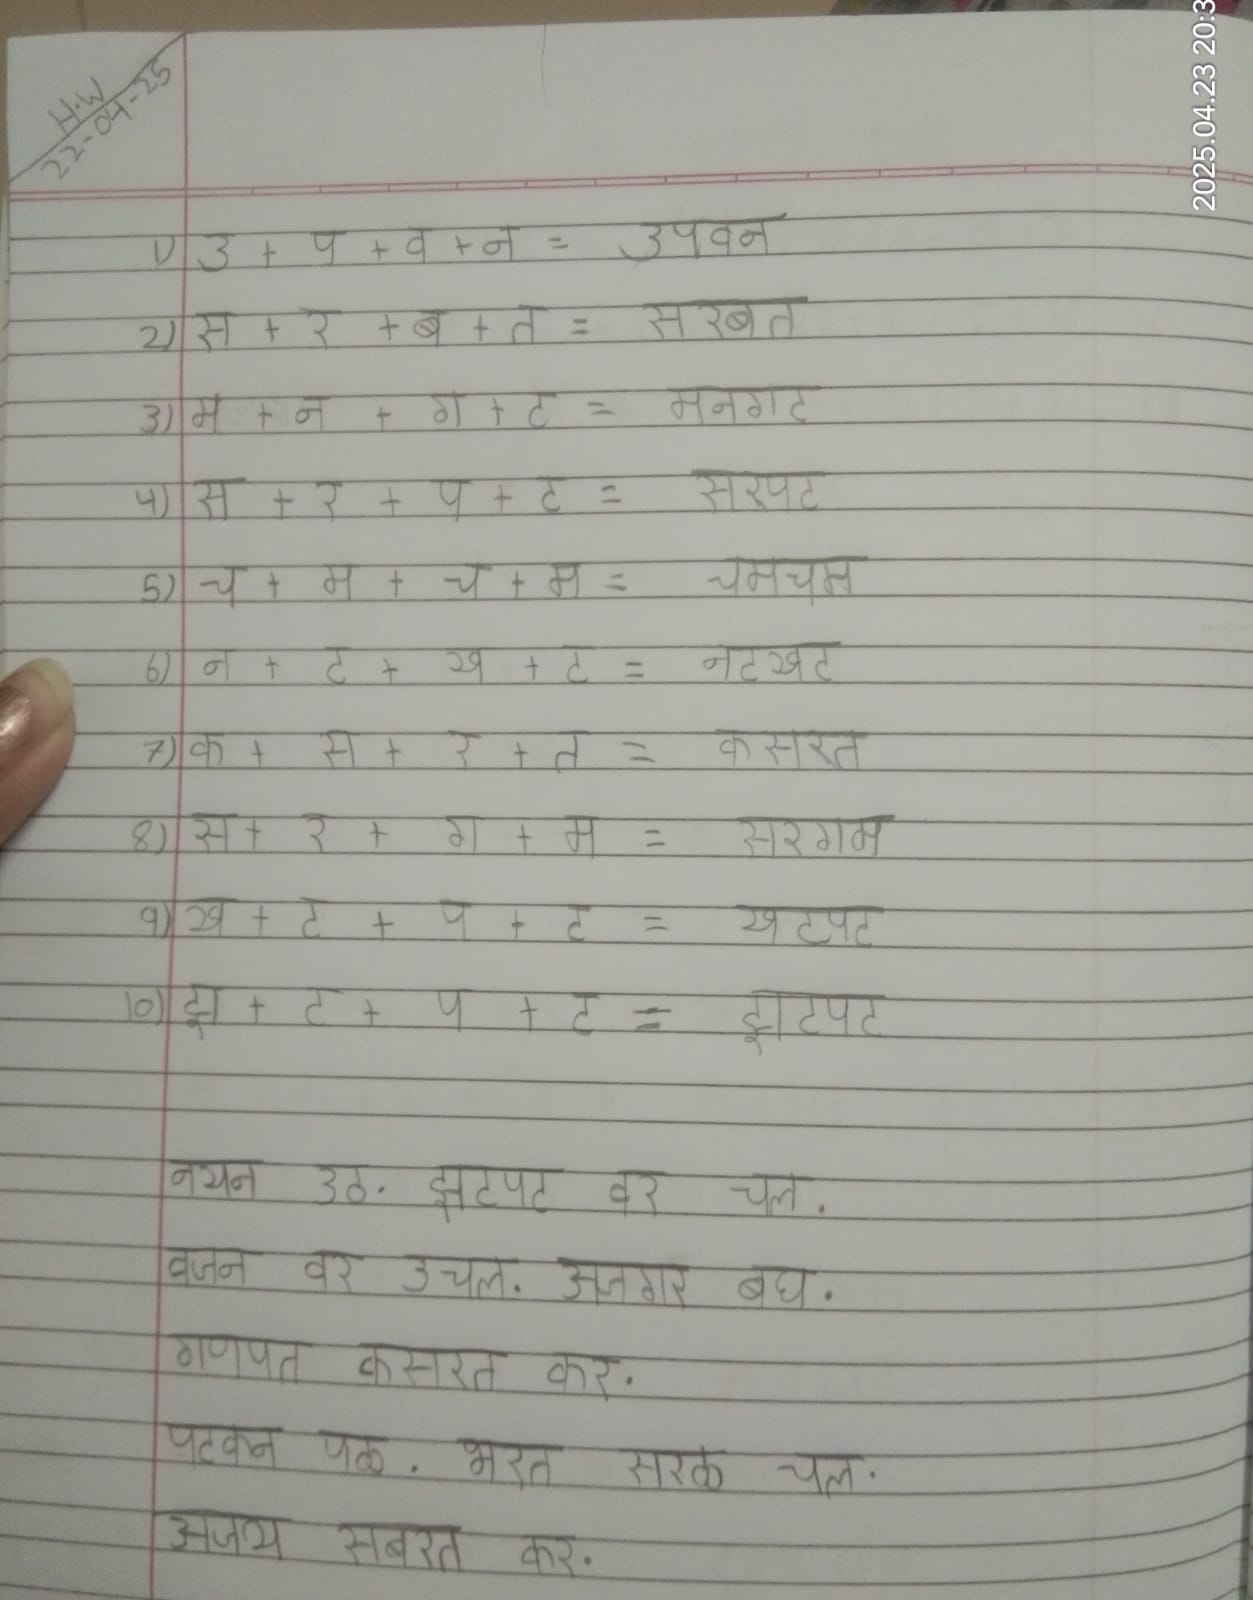 2025.04.23 20:3
H.W
22-04-25
1) उ + प + व + न = उपवन
2) स + र + ब + त = सरबत
3) म + न + ग + ट = मनगट
4) स + र + प + ट = सरपट
5) च + म + च + म = चमचम
6) न + ट + ख + ट = नटखट
7) क + स + र + त = कसरत
8) स + र + ग + म = सरगम
9) ख + ट + प + ट = खटपट
10) झ + ट + प + ट = झटपट
नयन उठ. झटपट वर चल.
वजन वर उचल. अजगर बघ.
गणपत कसरत कर.
पटकन पळ. भरत सरळ चल.
अजय सबरत कर.